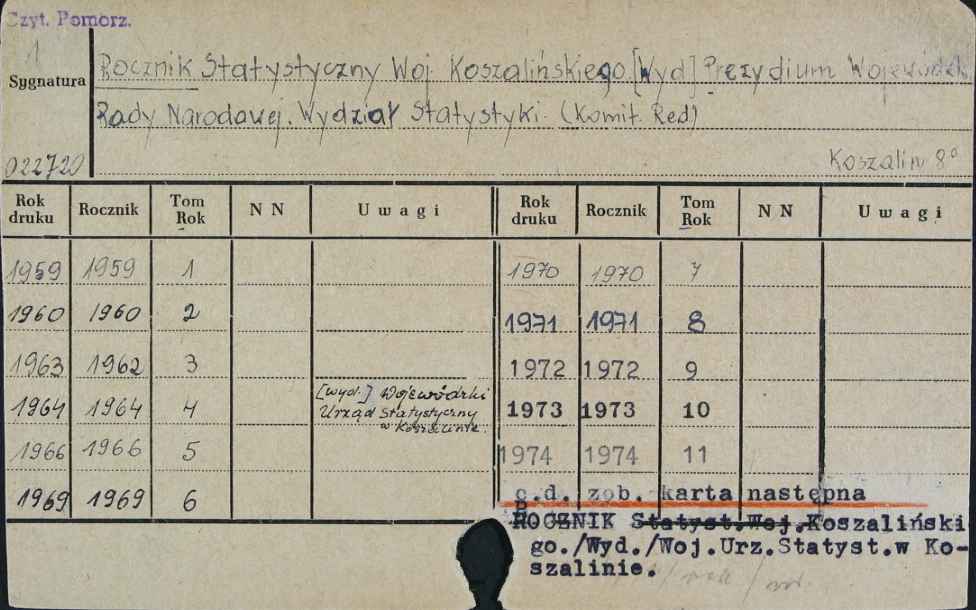 Czyt. Pomorz.
1
Sygnatura
022720
Rocznik Statystyczny Woj Koszalińskiego [Wyd] Prezydium Wojewódzk
Rady Narodowej. Wydział Statystyki. (Komit. Red)
Koszalin 8°
Rok druku Rocznik Tom Rok N N Uwagi Rok druku Rocznik Tom Rok N N Uwagi
1959 1959 1 1970 1970 7
1960 1960 2 1971 1971 8
1963 1962 3 1972 1972 9
1964 1964 4 [wyd.] Wojewódzki Urząd Statystyczny w Koszalinie. 1973 1973 10
1966 1966 5 1974 1974 11
1969 1969 6 c.d. zob. karta następna
ROCZNIK Statyst.Woj.Koszaliński
go./Wyd./Woj.Urz.Statyst.w Ko-
szalinie.